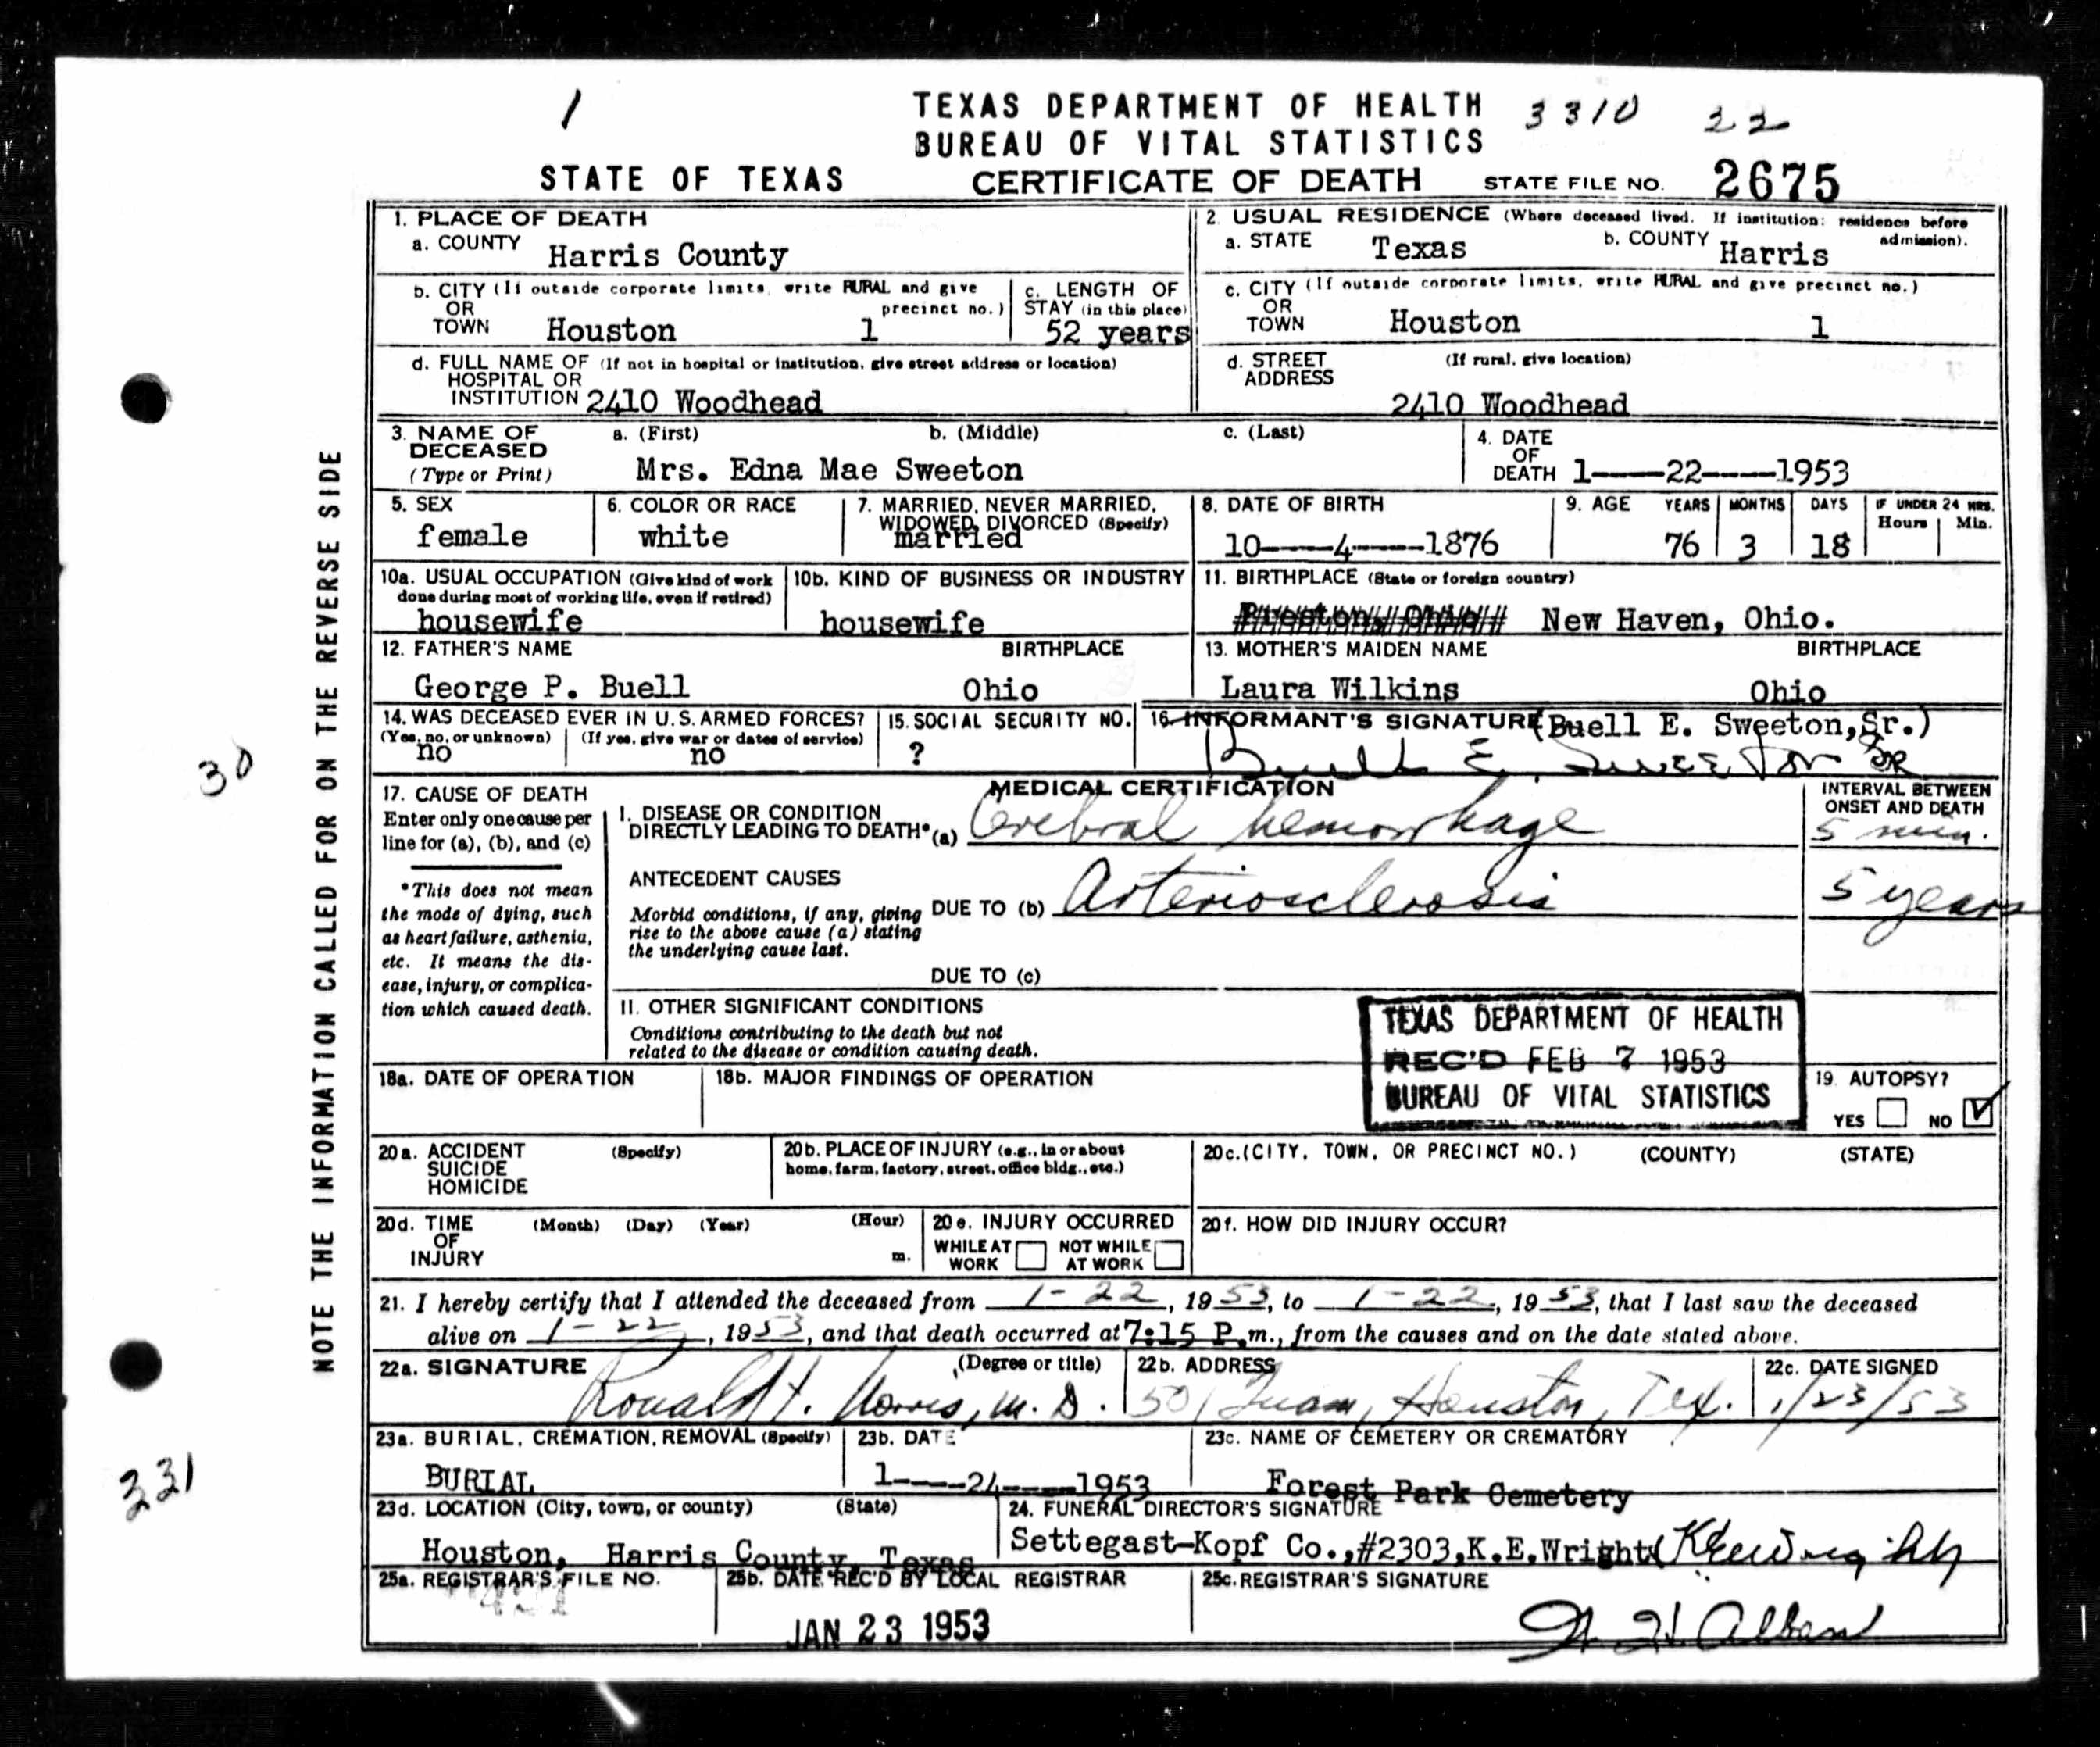 1
TEXAS DEPARTMENT OF HEALTH 3310 22
BUREAU OF VITAL STATISTICS
STATE OF TEXAS CERTIFICATE OF DEATH STATE FILE NO. 2675
NOTE THE INFORMATION CALLED FOR ON THE REVERSE SIDE
30
331
1. PLACE OF DEATH
a. COUNTY Harris County
2. USUAL RESIDENCE (Where deceased lived. If institution: residence before admission).
a. STATE Texas b. COUNTY Harris
b. CITY (If outside corporate limits, write RURAL and give precinct no.)
OR
TOWN Houston 1
c. LENGTH OF STAY (in this place) 52 years
c. CITY (If outside corporate limits, write RURAL and give precinct no.)
OR
TOWN Houston 1
d. FULL NAME OF (If not in hospital or institution, give street address or location)
HOSPITAL OR
INSTITUTION 2410 Woodhead
d. STREET (If rural, give location)
ADDRESS
2410 Woodhead
3. NAME OF DECEASED a. (First) b. (Middle) c. (Last)
(Type or Print) Mrs. Edna Mae Sweeton
4. DATE OF DEATH 1----22----1953
5. SEX female
6. COLOR OR RACE white
7. MARRIED, NEVER MARRIED, WIDOWED, DIVORCED (Specify) married
8. DATE OF BIRTH 10----4----1876
9. AGE YEARS MONTHS DAYS IF UNDER 24 HRS. Hours Min.
76 3 18
10a. USUAL OCCUPATION (Give kind of work done during most of working life, even if retired) housewife
10b. KIND OF BUSINESS OR INDUSTRY housewife
11. BIRTHPLACE (State or foreign country)
New Haven, Ohio.
12. FATHER'S NAME BIRTHPLACE
George P. Buell Ohio
13. MOTHER'S MAIDEN NAME BIRTHPLACE
Laura Wilkins Ohio
14. WAS DECEASED EVER IN U.S. ARMED FORCES?
(Yes, no, or unknown) (If yes, give war or dates of service)
no no
15. SOCIAL SECURITY NO. ?
16. INFORMANT'S SIGNATURE (Buell E. Sweeton, Sr.)
Buell E. Sweeton SR
17. CAUSE OF DEATH
Enter only one cause per line for (a), (b), and (c)
*This does not mean the mode of dying, such as heart failure, asthenia, etc. It means the disease, injury, or complication which caused death.
MEDICAL CERTIFICATION
INTERVAL BETWEEN ONSET AND DEATH
I. DISEASE OR CONDITION
DIRECTLY LEADING TO DEATH* (a) Cerebral hemorrhage 5 min.
ANTECEDENT CAUSES
Morbid conditions, if any, giving rise to the above cause (a) stating the underlying cause last.
DUE TO (b) Arteriosclerosis 5 years
DUE TO (c)
II. OTHER SIGNIFICANT CONDITIONS
Conditions contributing to the death but not related to the disease or condition causing death.
TEXAS DEPARTMENT OF HEALTH
REC'D FEB 7 1953
BUREAU OF VITAL STATISTICS
18a. DATE OF OPERATION
18b. MAJOR FINDINGS OF OPERATION
19. AUTOPSY?
YES NO
20a. ACCIDENT (Specify)
SUICIDE
HOMICIDE
20b. PLACE OF INJURY (e.g., in or about home, farm, factory, street, office bldg., etc.)
20c. (CITY, TOWN, OR PRECINCT NO.) (COUNTY) (STATE)
20d. TIME OF INJURY (Month) (Day) (Year) (Hour) m.
20e. INJURY OCCURRED
WHILE AT WORK NOT WHILE AT WORK
20f. HOW DID INJURY OCCUR?
21. I hereby certify that I attended the deceased from 1-22, 1953, to 1-22, 1953, that I last saw the deceased
alive on 1-22, 1953, and that death occurred at 7:15 P.m., from the causes and on the date stated above.
22a. SIGNATURE (Degree or title)
Ronald H. Norris, M.D.
22b. ADDRESS
501 Houston, Tex.
22c. DATE SIGNED
1/23/53
23a. BURIAL, CREMATION, REMOVAL (Specify)
BURIAL
23b. DATE
1----24----1953
23c. NAME OF CEMETERY OR CREMATORY
Forest Park Cemetery
23d. LOCATION (City, town, or county) (State)
Houston, Harris County, Texas
24. FUNERAL DIRECTOR'S SIGNATURE
Settegast-Kopf Co., #2303, K.E. Wright (K E Wright
25a. REGISTRAR'S FILE NO.
25b. DATE REC'D BY LOCAL REGISTRAR
JAN 23 1953
25c. REGISTRAR'S SIGNATURE